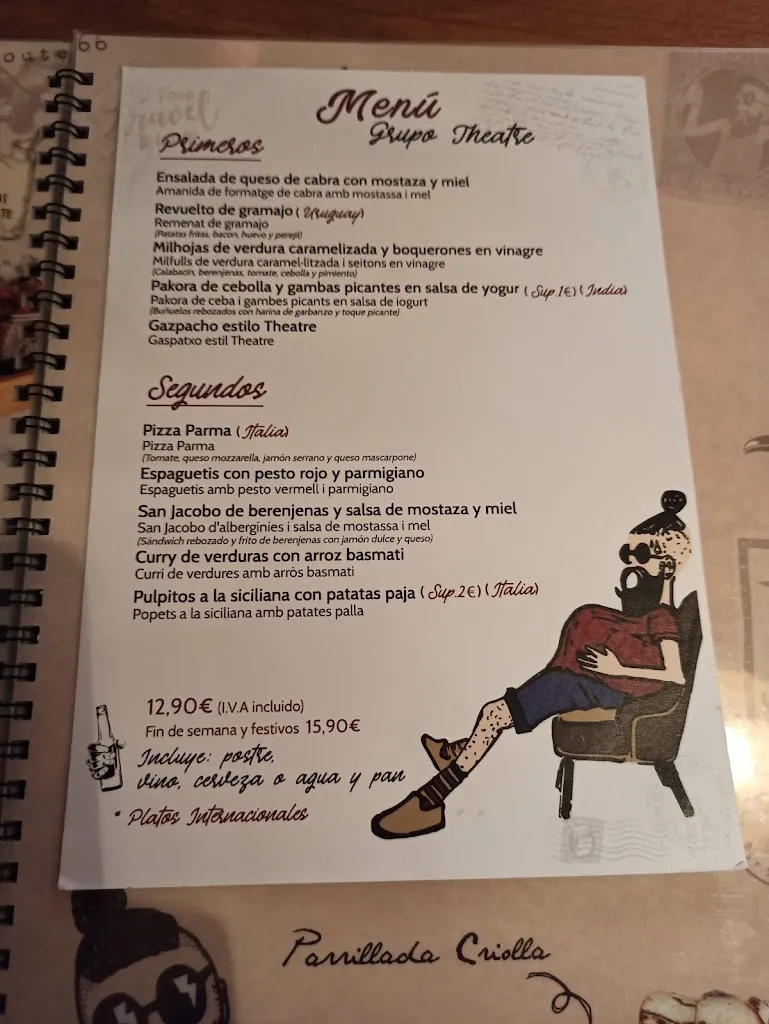 oute 66
Menú
Grupo Theatre
Primeros
Ensalada de queso de cabra con mostaza y miel
Amanida de formatge de cabra amb mostassa i mel
Revuelto de gramajo ( Uruguay)
Remenat de gramajo
(Patatas fritas, bacon, huevo y perejil)
Milhojas de verdura caramelizada y boquerones en vinagre
Milfulls de verdura caramel·litzada i seitons en vinagre
(Calabacín, berenjenas, tomate, cebolla y pimiento)
Pakora de cebolla y gambas picantes en salsa de yogur ( Sup.1€) ( India)
Pakora de ceba i gambes picants en salsa de iogurt
(Buñuelos rebozados con harina de garbanzo y toque picante)
Gazpacho estilo Theatre
Gaspatxo estil Theatre
Segundos
Pizza Parma ( Italia)
Pizza Parma
(Tomate, queso mozzarella, jamón serrano y queso mascarpone)
Espaguetis con pesto rojo y parmigiano
Espaguetis amb pesto vermell i parmigiano
San Jacobo de berenjenas y salsa de mostaza y miel
San Jacobo d'albergínies i salsa de mostassa i mel
(Sándwich rebozado y frito de berenjenas con jamón dulce y queso)
Curry de verduras con arroz basmati
Curri de verdures amb arròs basmati
Pulpitos a la siciliana con patatas paja ( Sup.2€) ( Italia)
Popets a la siciliana amb patates palla
12,90€ (I.V.A incluido)
Fin de semana y festivos 15,90€
Incluye: postre,
vino, cerveza o agua y pan
* Platos Internacionales
Parrillada Criolla